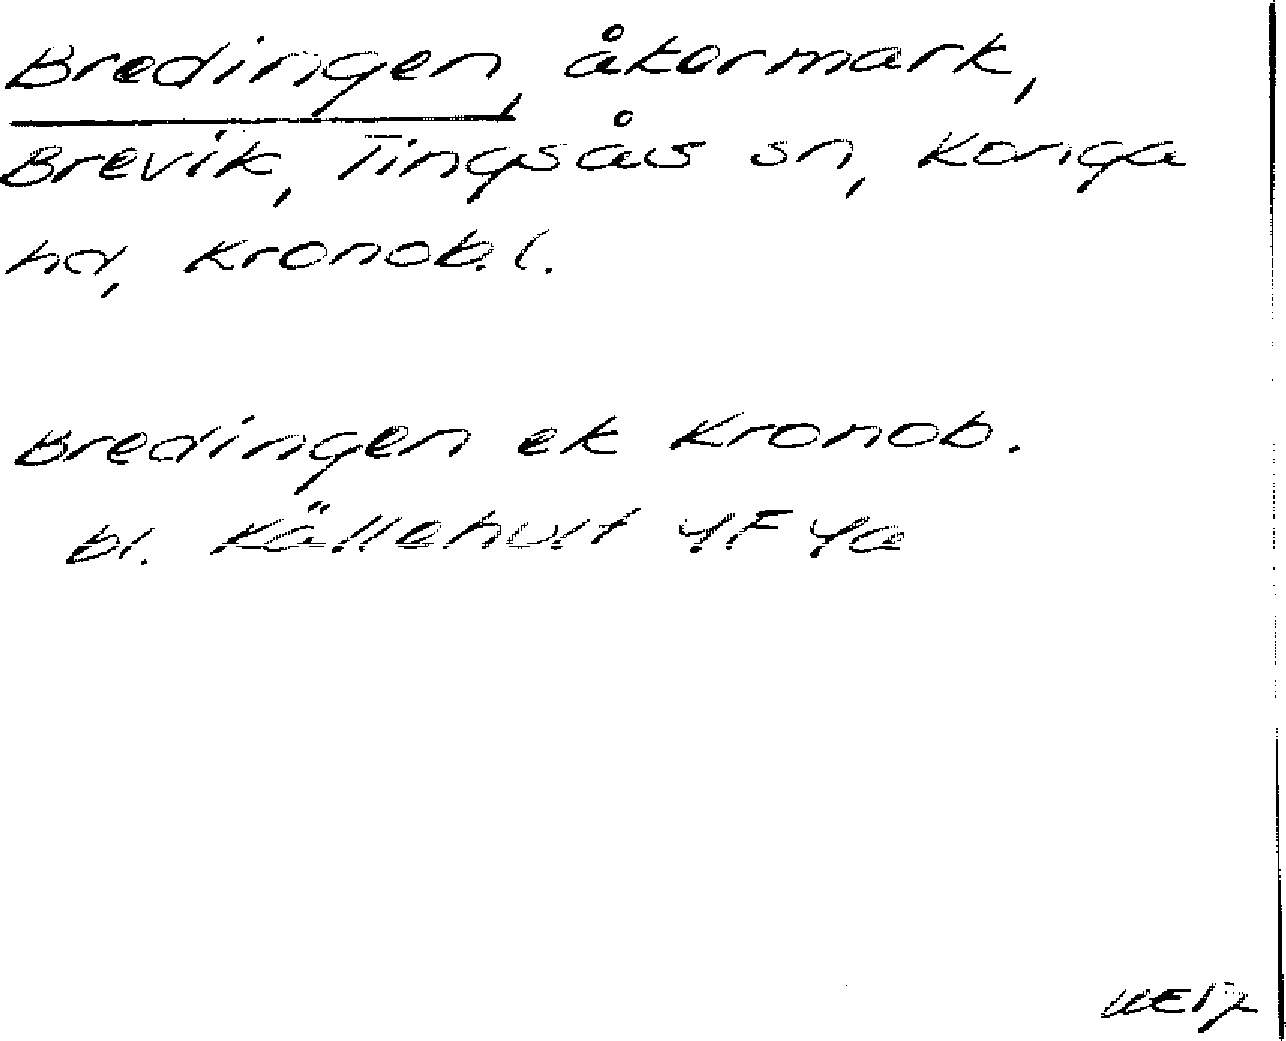 Bredingen, åkermark,
Brevik, Tingsås sn, Konga
hd, Kronob. l.
Bredingen ek Kronob.
bl. Källehult 4F 4a